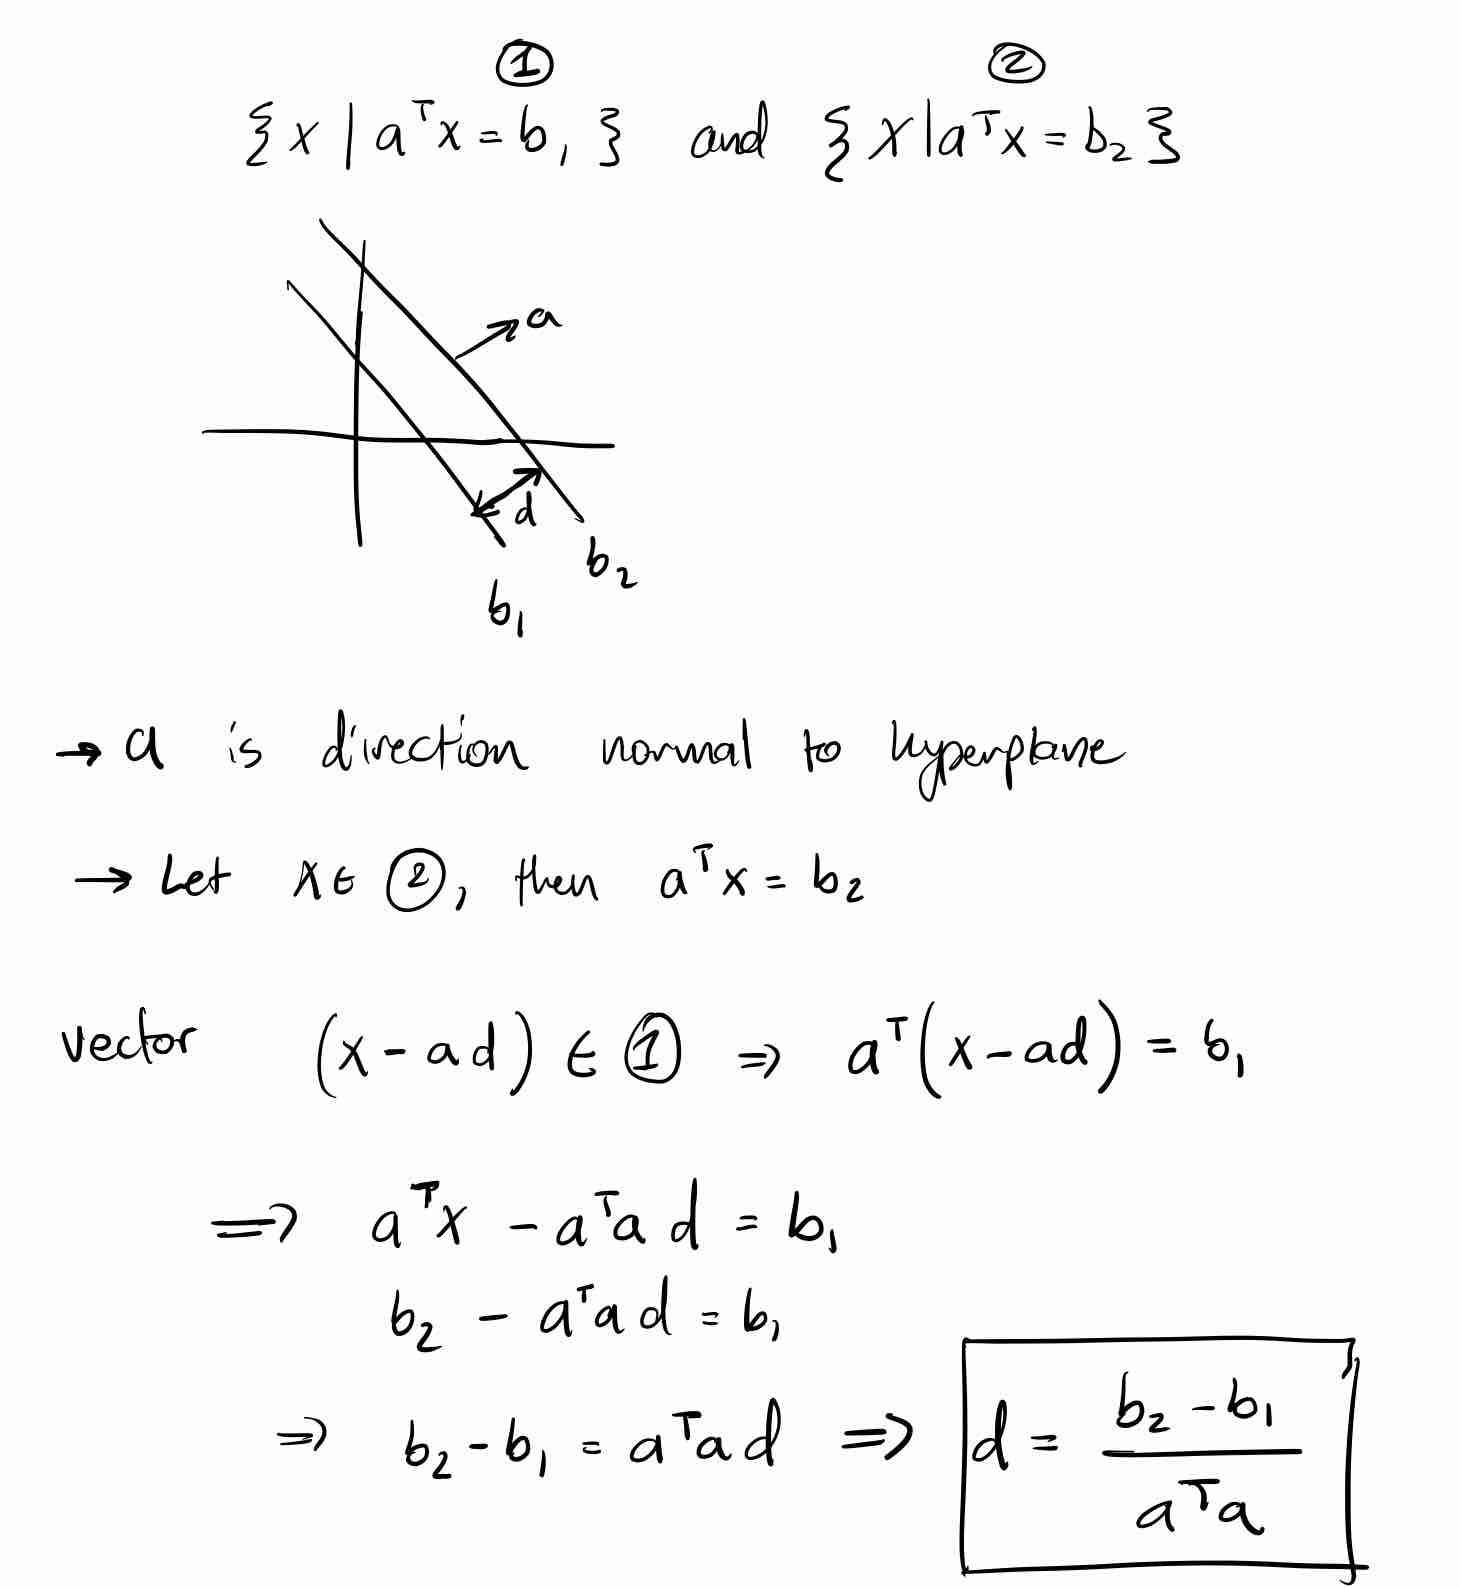 ① ②
{x | aᵀx = b₁} and {x | aᵀx = b₂}
a
d
b₂
b₁
→ a is direction normal to hyperplane
→ Let x ∈ ②, then aᵀx = b₂
vector (x - ad) ∈ ① ⇒ aᵀ(x - ad) = b₁
⇒ aᵀx - aᵀa d = b₁
b₂ - aᵀa d = b₁
⇒ b₂ - b₁ = aᵀa d ⇒ d = (b₂ - b₁) / (aᵀa)